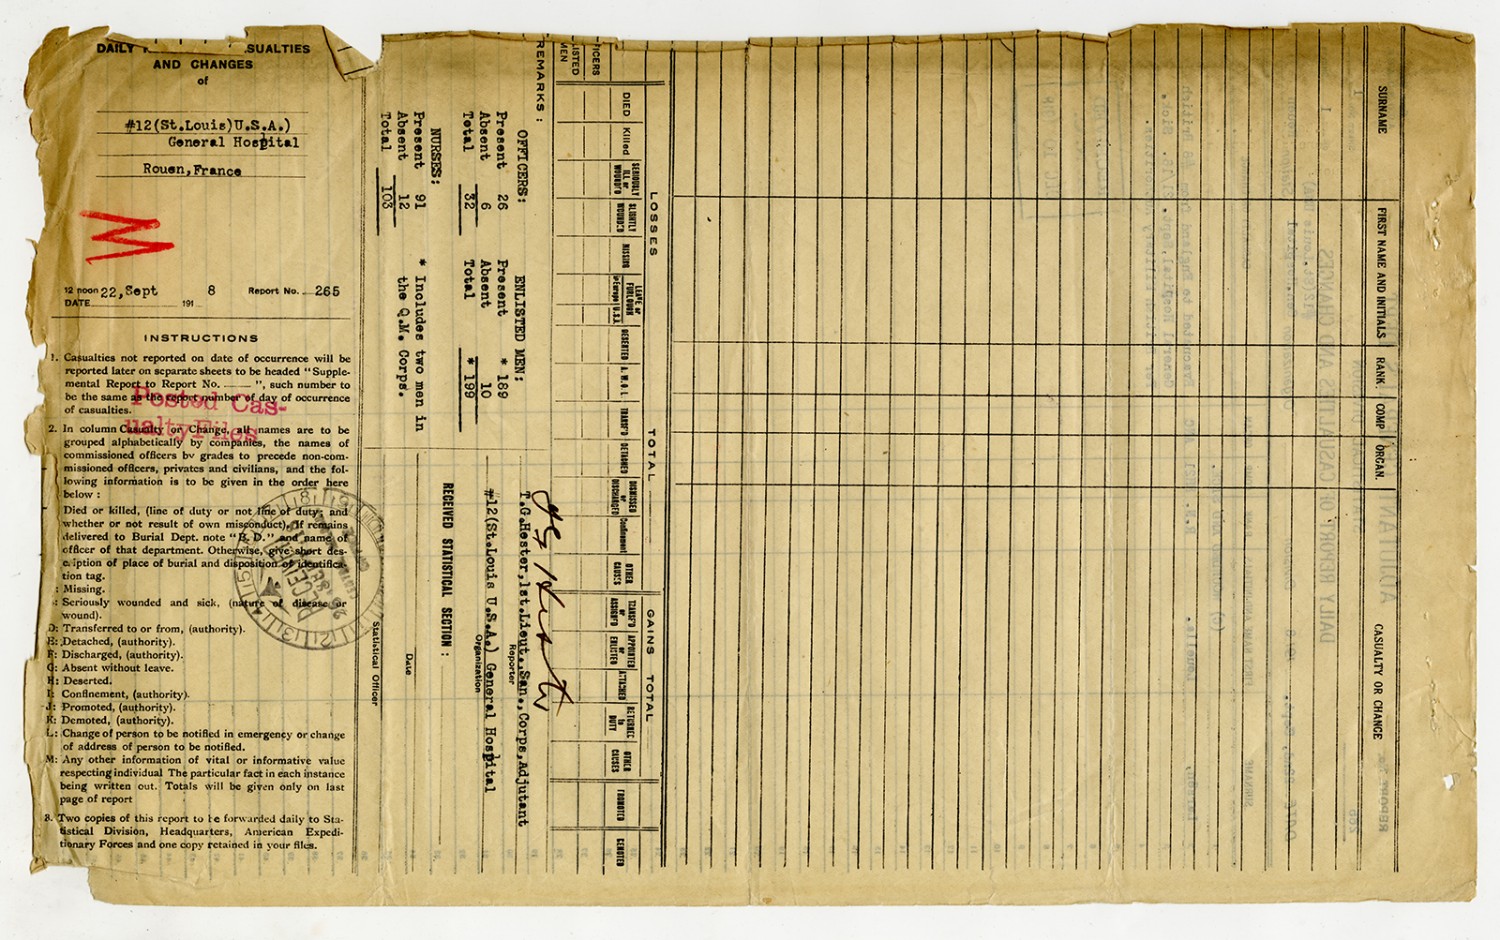 DAILY
SUALTIES
AND CHANGES
of
#12(St.Louis)U.S.A.)
General Hospital
Rouen,France
12 noon 22,Sept 8 Report No. 265
DATE 191
INSTRUCTIONS
1. Casualties not reported on date of occurrence will be
reported later on separate sheets to be headed "Supple-
mental Report to Report No. ——— ", such number to
be the same as the report number of day of occurrence
of casualties.
Posted Cas-
ualty Files
2. In column Casualty or Change, all names are to be
grouped alphabetically by companies, the names of
commissioned officers by grades to precede non-com-
missioned officers, privates and civilians, and the fol-
lowing information is to be given in the order here
below :
Died or killed, (line of duty or not line of duty; and
whether or not result of own misconduct). If remains
delivered to Burial Dept. note "B. D." and name of
officer of that department. Otherwise, give short des-
cription of place of burial and disposition of identifica-
tion tag.
: Missing.
: Seriously wounded and sick, (nature of disease or
wound).
D: Transferred to or from, (authority).
E: Detached, (authority).
F: Discharged, (authority).
G: Absent without leave.
H: Deserted.
I: Confinement, (authority).
J: Promoted, (authority).
K: Demoted, (authority).
L: Change of person to be notified in emergency or change
of address of person to be notified.
M: Any other information of vital or informative value
respecting individual The particular fact in each instance
being written out. Totals will be given only on last
page of report
3. Two copies of this report to be forwarded daily to Sta-
tistical Division, Headquarters, American Expedi-
tionary Forces and one copy retained in your files.
RECEIVED
SURNAME FIRST NAME AND INITIALS RANK. COMP ORGAN. CASUALTY OR CHANGE
LOSSES TOTAL GAINS TOTAL
DIED Killed SERIOUSLY ILL or WOUND'D SLIGHTLY WOUND'D MISSING LEAVE or FURLOUGH in Europe U.S.A. DESERTED A. W. O. L. TRANSF'D DETACHED DISMISSED or DISCHARGED Confinement OTHER CAUSES TRANSF'D or ASSIGN'D APPOINTED or ENLISTED ATTACHED RETURNED to DUTY OTHER CAUSES PROMOTED DEMOTED
FICERS
LISTED
MEN
REMARKS :
OFFICERS: ENLISTED MEN:
Present 26 Present * 189
Absent 6 Absent 10
Total 32 Total * 199
NURSES:
Present 91 * Includes two men in
Absent 12 the Q.M. Corps.
Total 103
T G Hester
T.G.Hester,1st.Lieut.,San.,Corps,Adjutant
Reporter
#12(St.Louis U.S.A.) General Hospital
Organization
RECEIVED STATISTICAL SECTION :
Date
Statistical Officer